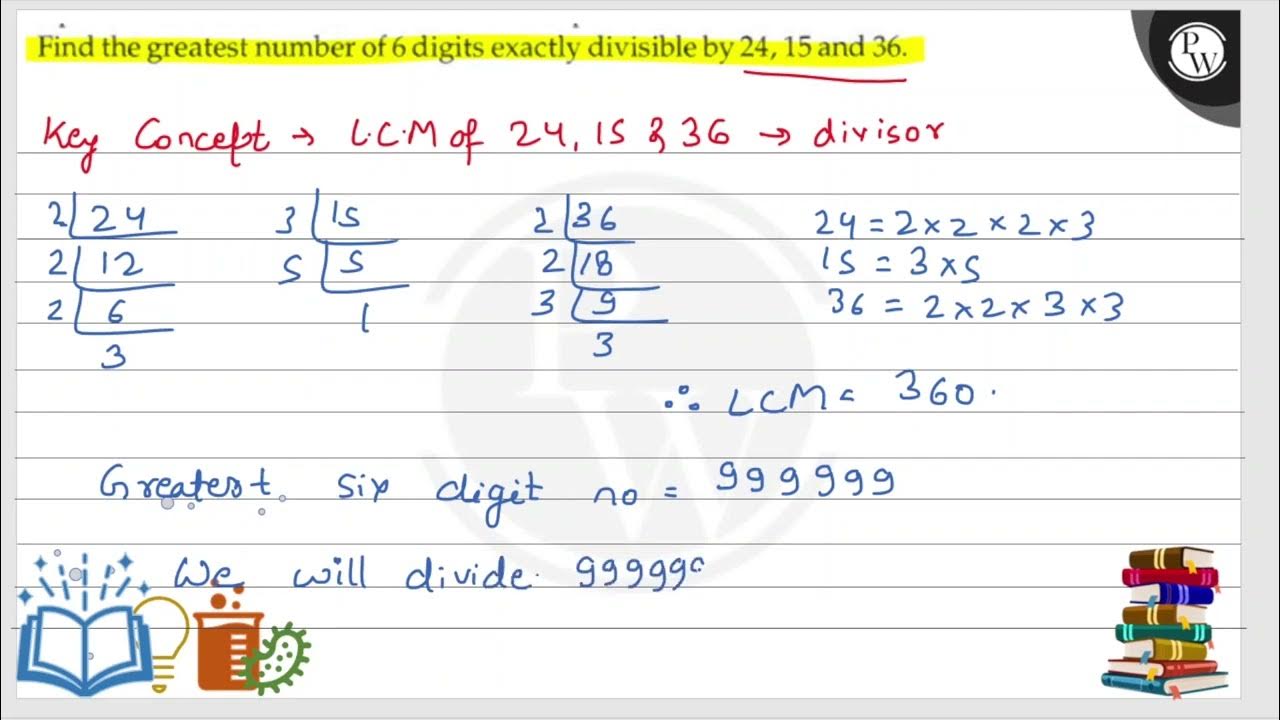 Find the greatest number of 6 digits exactly divisible by 24, 15 and 36.
P
W
Key Concept → L.C.M of 24, 15 & 36 → divisor
2 24 3 15 2 36 24 = 2 × 2 × 2 × 3
2 12 5 5 2 18 15 = 3 × 5
2 6 1 3 9 36 = 2 × 2 × 3 × 3
3 3
∴ LCM = 360.
Greatest six digit no = 999999
We will divide 99999
P
W